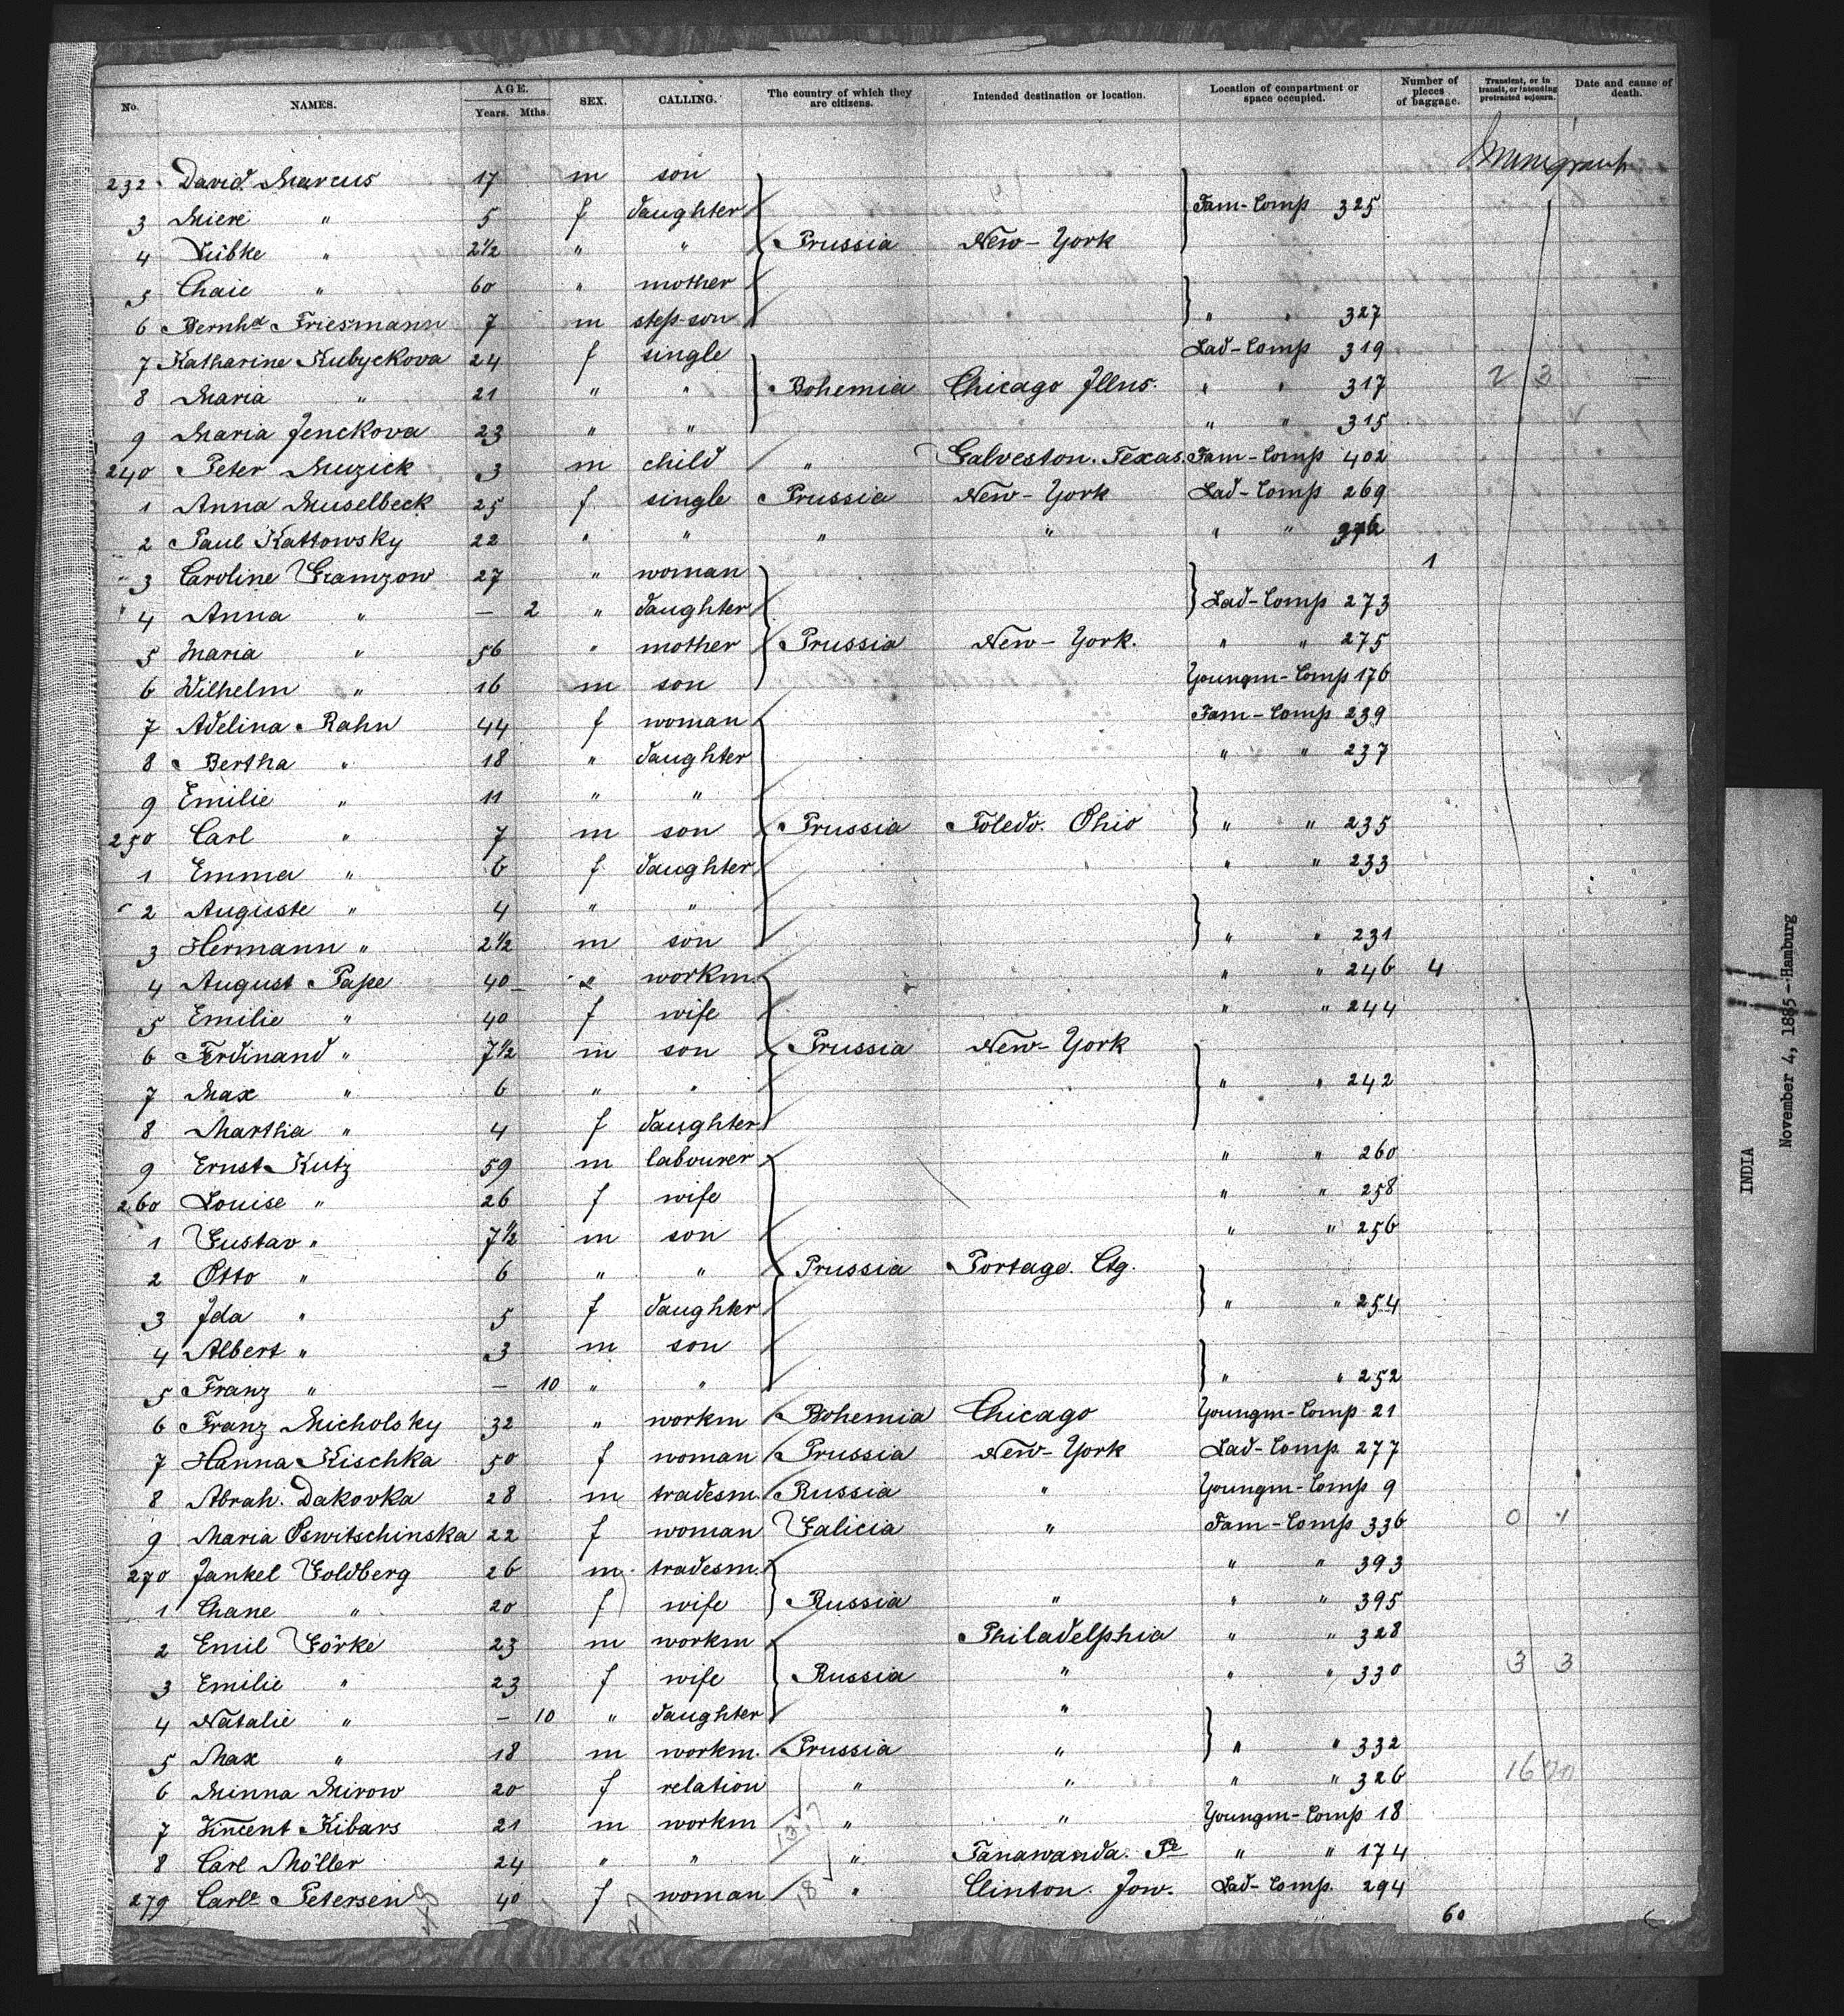 No. NAMES. AGE. Years. Mths. SEX. CALLING. The country of which they are citizens. Intended destination or location. Location of compartment or space occupied. Number of pieces of baggage. Transient, or in transit, or intending protracted sojourn. Date and cause of death.
232 David Marcus 17 m son
3 Miere " 5 f daughter Fam-Comp 325
4 Liebke " 2½ " " Prussia New-York
5 Chaie " 60 " mother
6 Bernhd Friesmann 7 m step-son " " 327
7 Katharine Kubyckova 24 f single Lad-Comp 319
8 Maria " 21 " " Bohemia Chicago Jllns. " " 317 2 3
9 Maria Jenckova 23 " " " " 315
240 Peter Muzick 3 m child " Galveston. Texas. Fam-Comp 402
1 Anna Muselbeck 25 f single Prussia New-York Lad-Comp 269
2 Paul Kattowsky 22 " " " " " "
3 Caroline Gramzow 27 " woman 1
4 Anna " — 2 " daughter Lad-Comp 273
5 Maria " 56 " mother Prussia New-York. " " 275
6 Wilhelm " 16 m son Youngm-Comp 176
7 Adelina Rahn 44 f woman Fam-Comp 239
8 Bertha " 18 " daughter " " 237
9 Emilie " 11 " "
250 Carl " 7 m son Prussia Toledo. Ohio " " 235
1 Emma " 6 f daughter " " 233
2 Auguste " 4 " "
3 Hermann " 2½ m son " " 231
4 August Pape 40 " workm. " " 246 4
5 Emilie " 40 f wife " " 244
6 Ferdinand " 7½ m son Prussia New-York
7 Max " 6 " " " " 242
8 Martha " 4 f daughter
9 Ernst Kutz 59 m labourer " " 260
260 Louise " 26 f wife " " 258
1 Gustav " 7½ m son " " 256
2 Otto " 6 " " Prussia Portage. Ctg.
3 Jda " 5 f daughter " " 254
4 Albert " 3 m son
5 Franz " — 10 " " " " 252
6 Franz Micholsky 32 " workm Bohemia Chicago Youngm-Comp 21
7 Hanna Kischka 50 f woman Prussia New-York Lad-Comp. 277
8 Abrah. Dakovka 28 m tradesm. Russia " Youngm-Comp 9
9 Maria Oswitschinska 22 f woman Galicia " Fam-Comp 336 0 1
270 Jankel Goldberg 26 m tradesm. " " 393
1 Chane " 20 f wife Russia " " " 395
2 Emil Görke 23 m workm Philadelphia " " 328
3 Emilie " 23 f wife Russia " " " 330 3 3
4 Natalie " — 10 " daughter "
5 Max " 18 m workm. Prussia " " " 332
6 Minna Mirow 20 f relation " " " " 326
7 Vincent Kibars 21 m workm " " Youngm-Comp 18
8 Carl Möller 24 " " " Tanawanda. Pe " " 174
279 Carle Petersen 40 f woman " Clinton. Jow. Lad-Comp. 294
60
INDIA
November 4, 1885-Hamburg